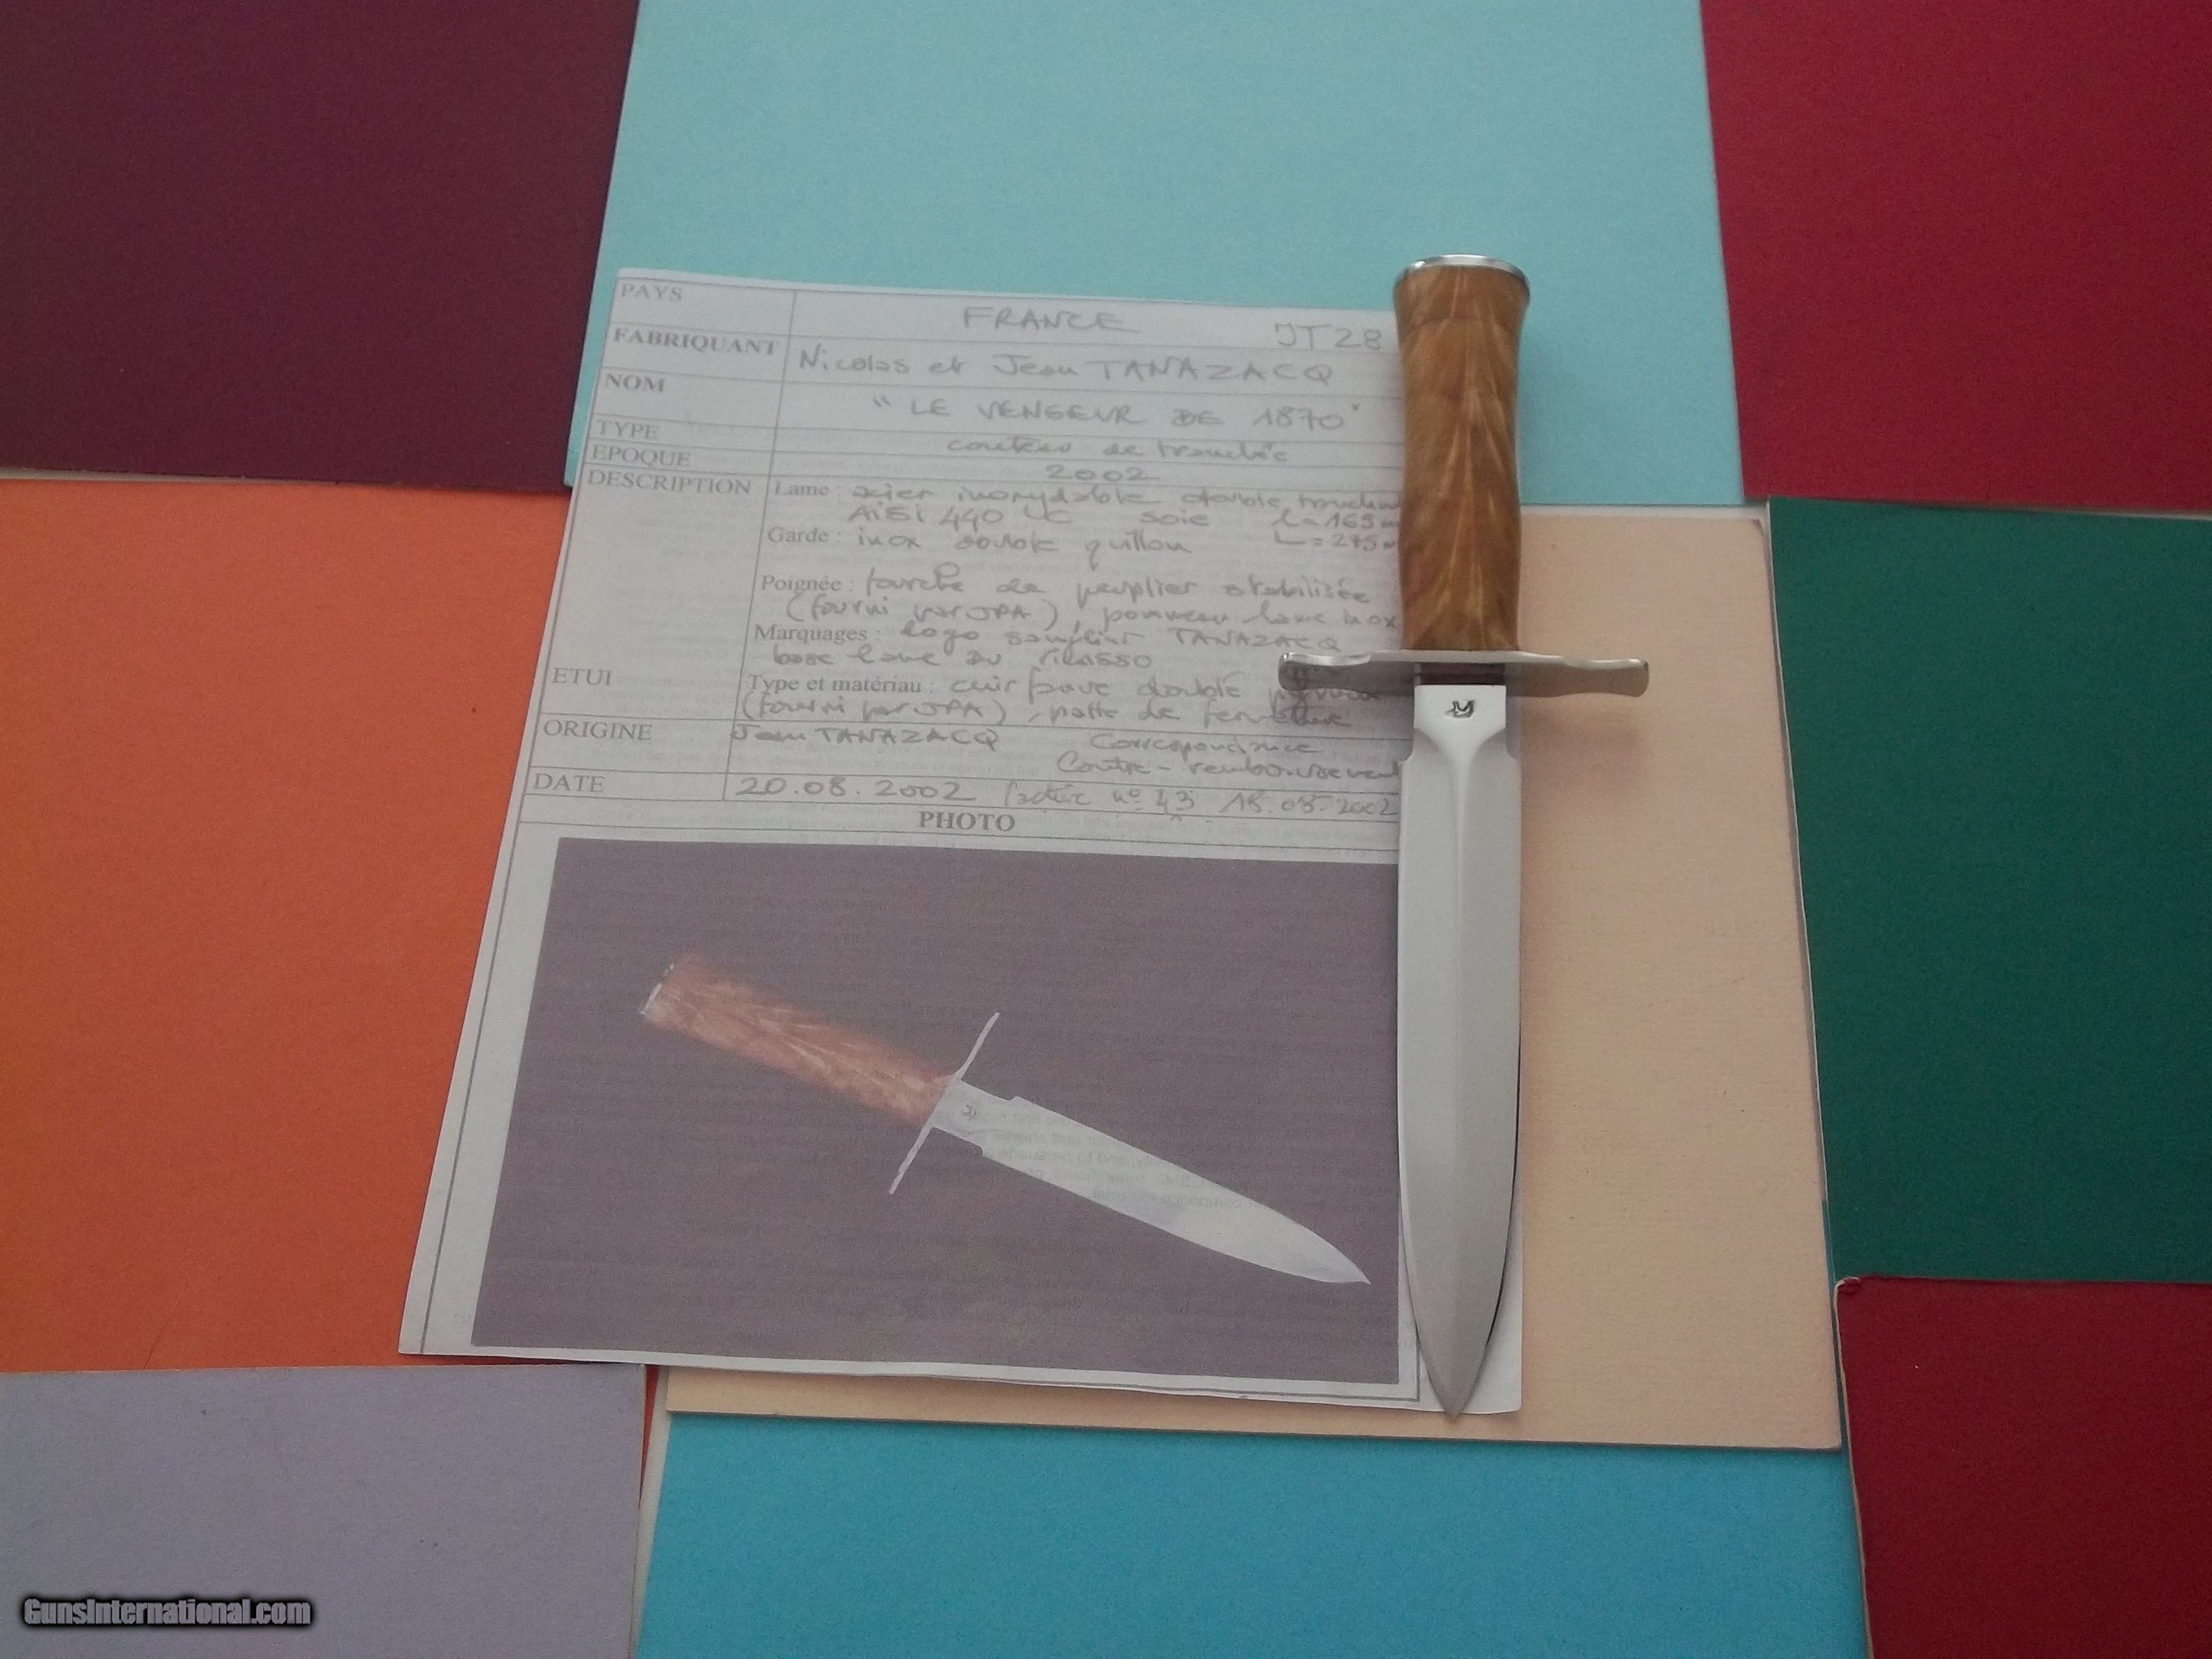 PAYS FRANCE JT 28
FABRIQUANT Nicolas et Jean TANAZACQ
NOM " LE VENGEUR DE 1870 "
TYPE couteau de tranchée
EPOQUE 2002
DESCRIPTION Lame : acier inoxydable double tranchan
AiSi 440 UC soie l = 165 m
Garde : inox double quillon L = 275 m
Poignée : fourche de peuplier stabilisée
(fourni par JPA), pommeau lame inox
Marquages : logo sanglier TANAZACQ
base lame au ricasso
ETUI Type et matériau : cuir fauve doublé
(fourni par JPA), patte de fermeture
ORIGINE Jean TANAZACQ Correspondance
Contre-remboursement
DATE 20.08.2002 facture n° 43 18.08.2002
PHOTO
GunsInternational.com